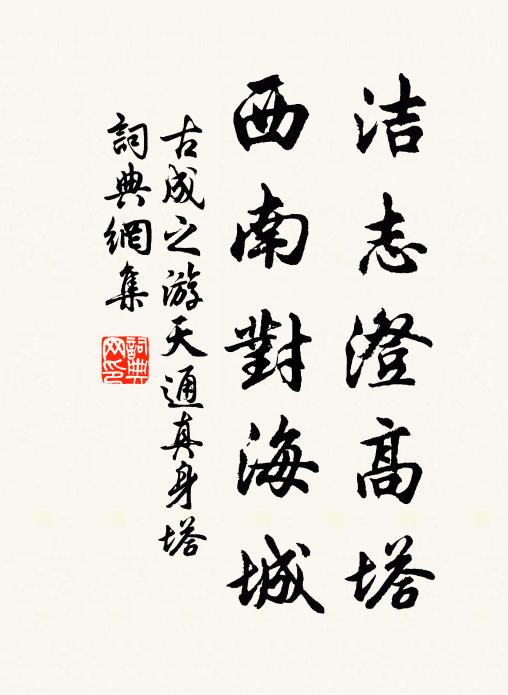 洁志澄高塔
西南對海城
古成之游天通真身塔
詞典網集
詞典網印